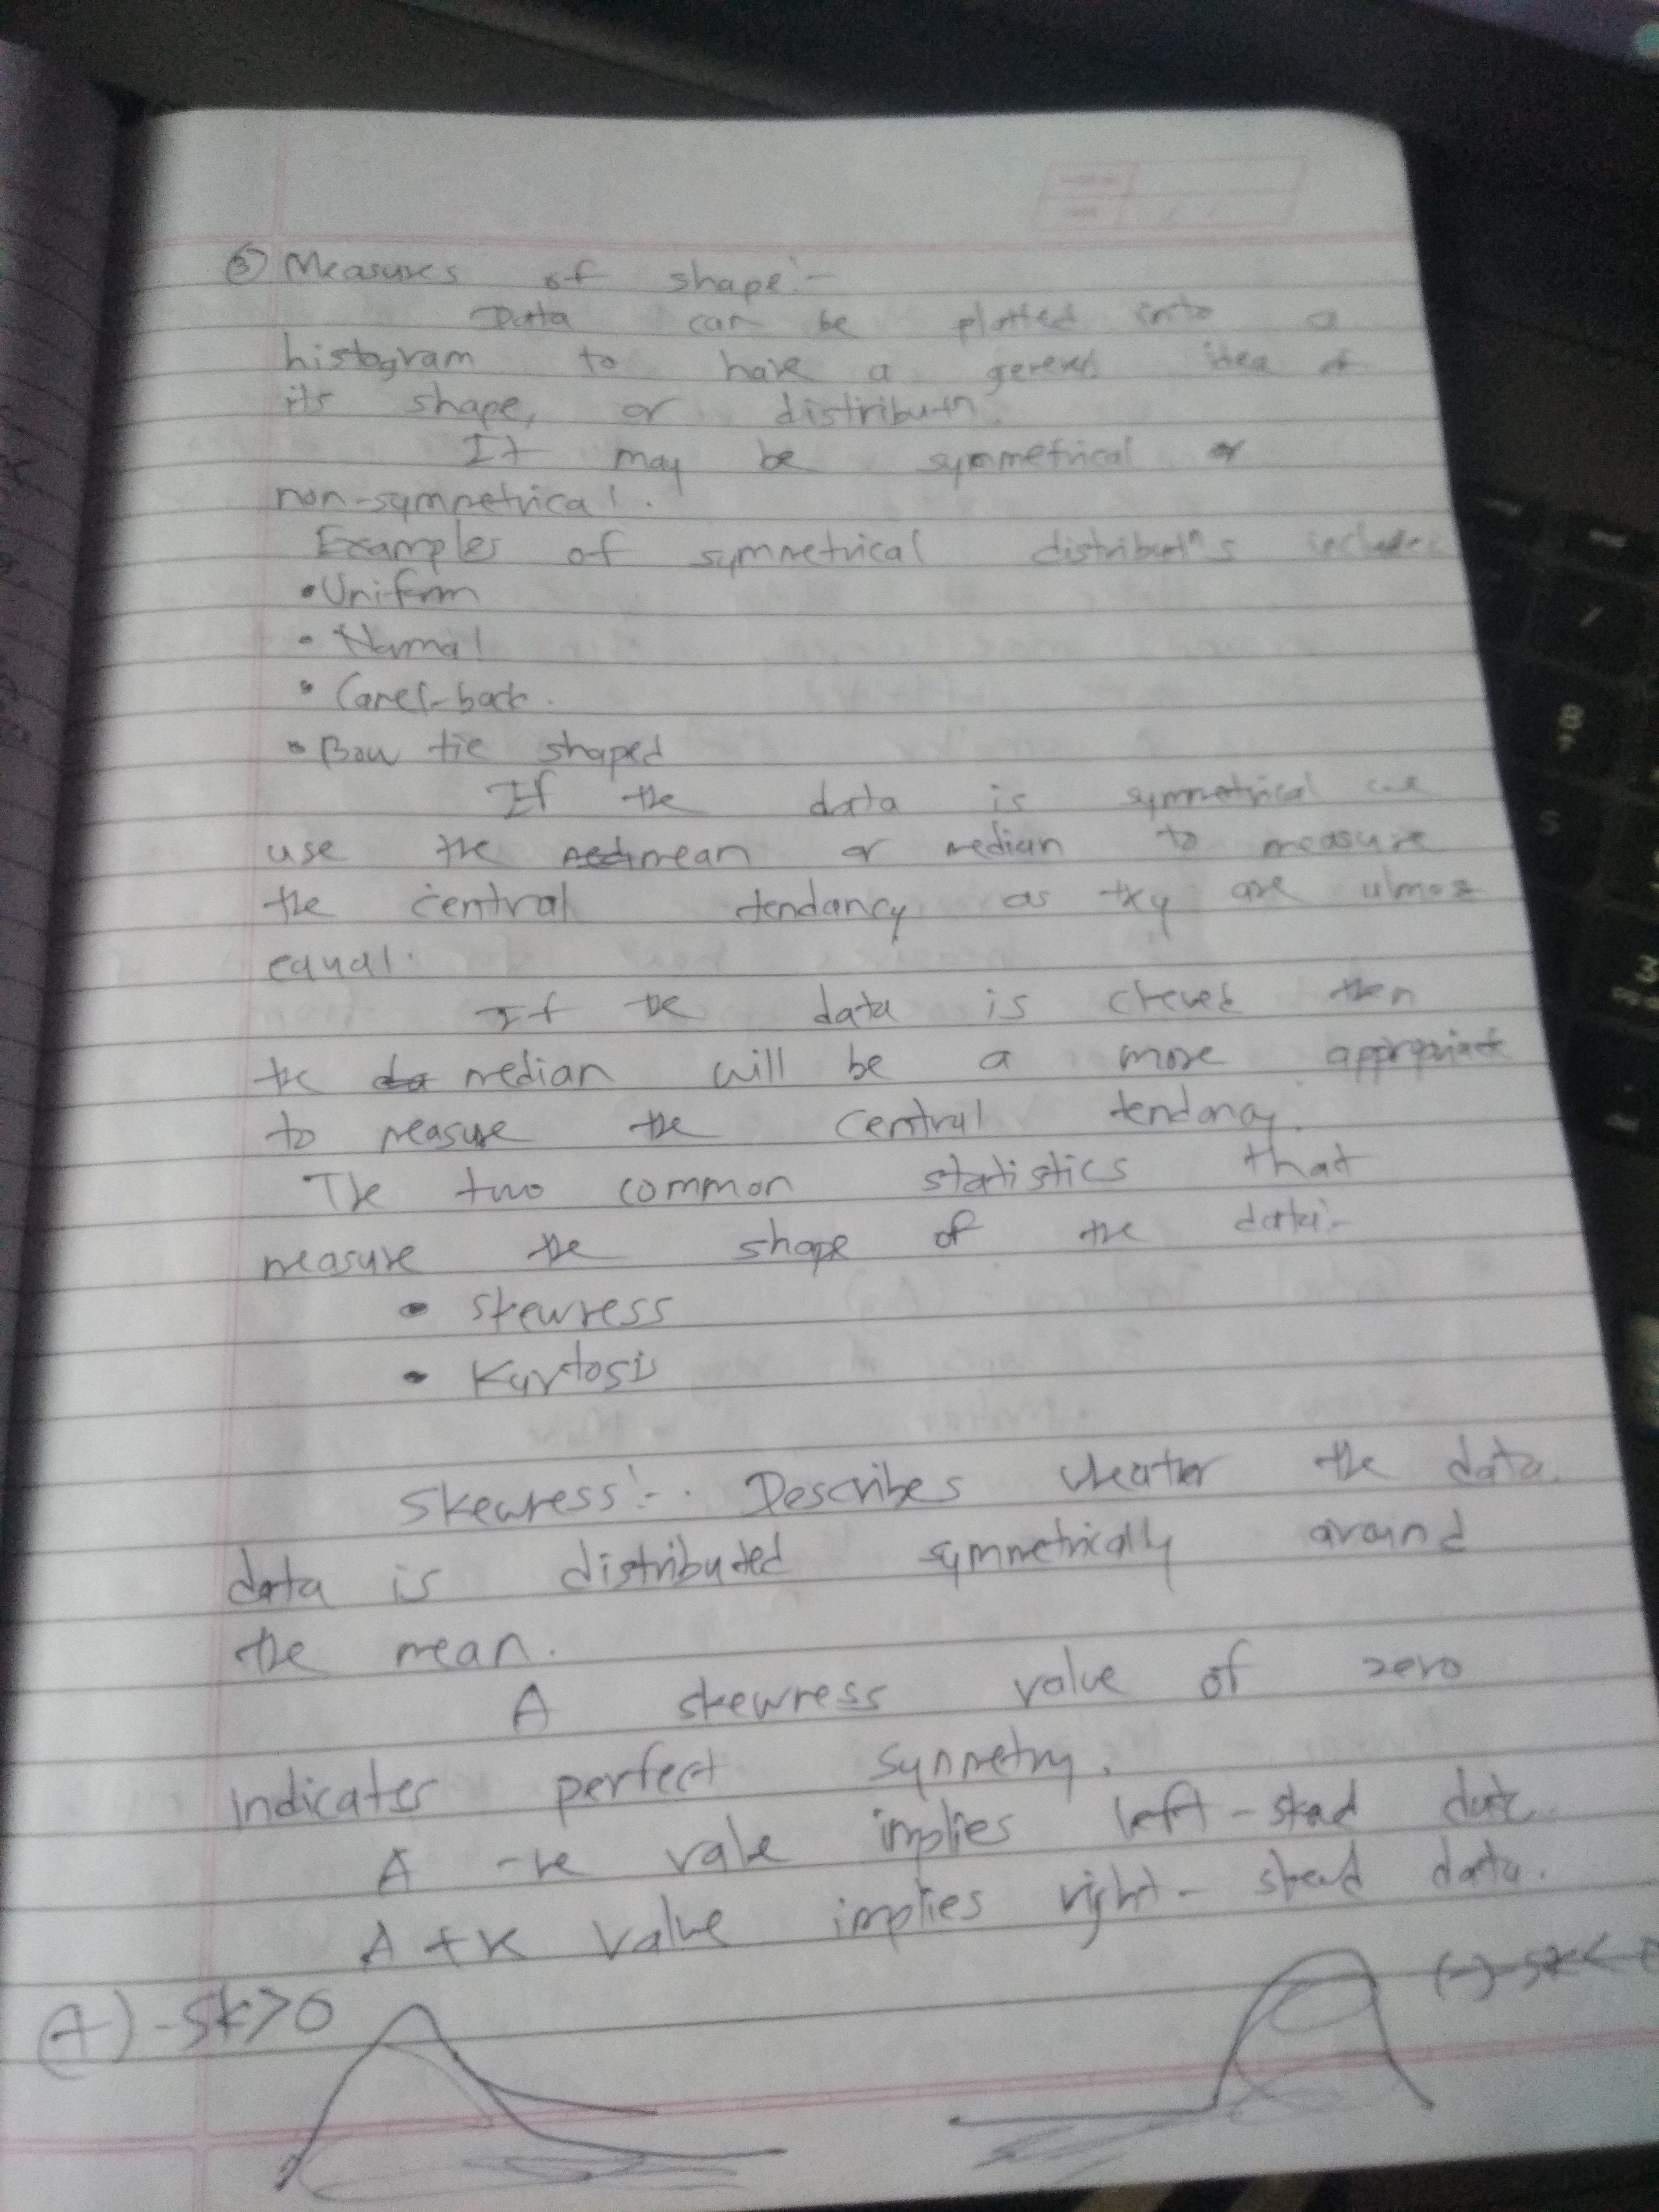 ③ Measures of shape:-
Data can be plotted into a
histogram to have a general idea of
its shape, or distributn.
It may be symmetrical or
non-symmetrical.
Examples of symmetrical distributns includes
• Uniform
• Normal
• Camel-back.
• Bow tie shaped
If the data is symmetrical we
use the mean or median to measure
the central tendancy as they are almost
equal.
If the data is then
the median will be a more appropriate
to measure the central tendancy.
The two common statistics that
measure the shape of the data:-
• Skewness
• Kurtosis
Skewness:- Describes wheather the data
data is distributed symmetrically around
the mean.
A skewness value of zero
indicates perfect symmetry.
A -ve value implies left - data
A +ve value implies right - data.
(+) - SK>0
(-) - SK<
8
5
3